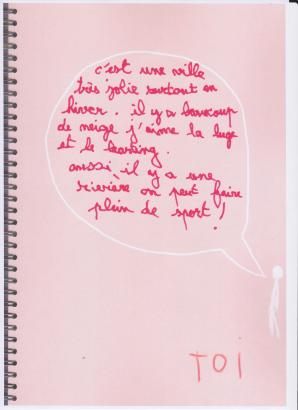 c'est une ville
très jolie surtout en
hiver. il y a beaucoup
de neige j'aime la luge
et le
aussi, il y a une
rivière on peut faire
plein de sport !
TOI